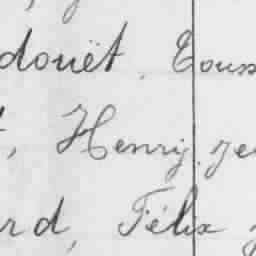 douët, Touss
t, Henry, je
rd, Félix